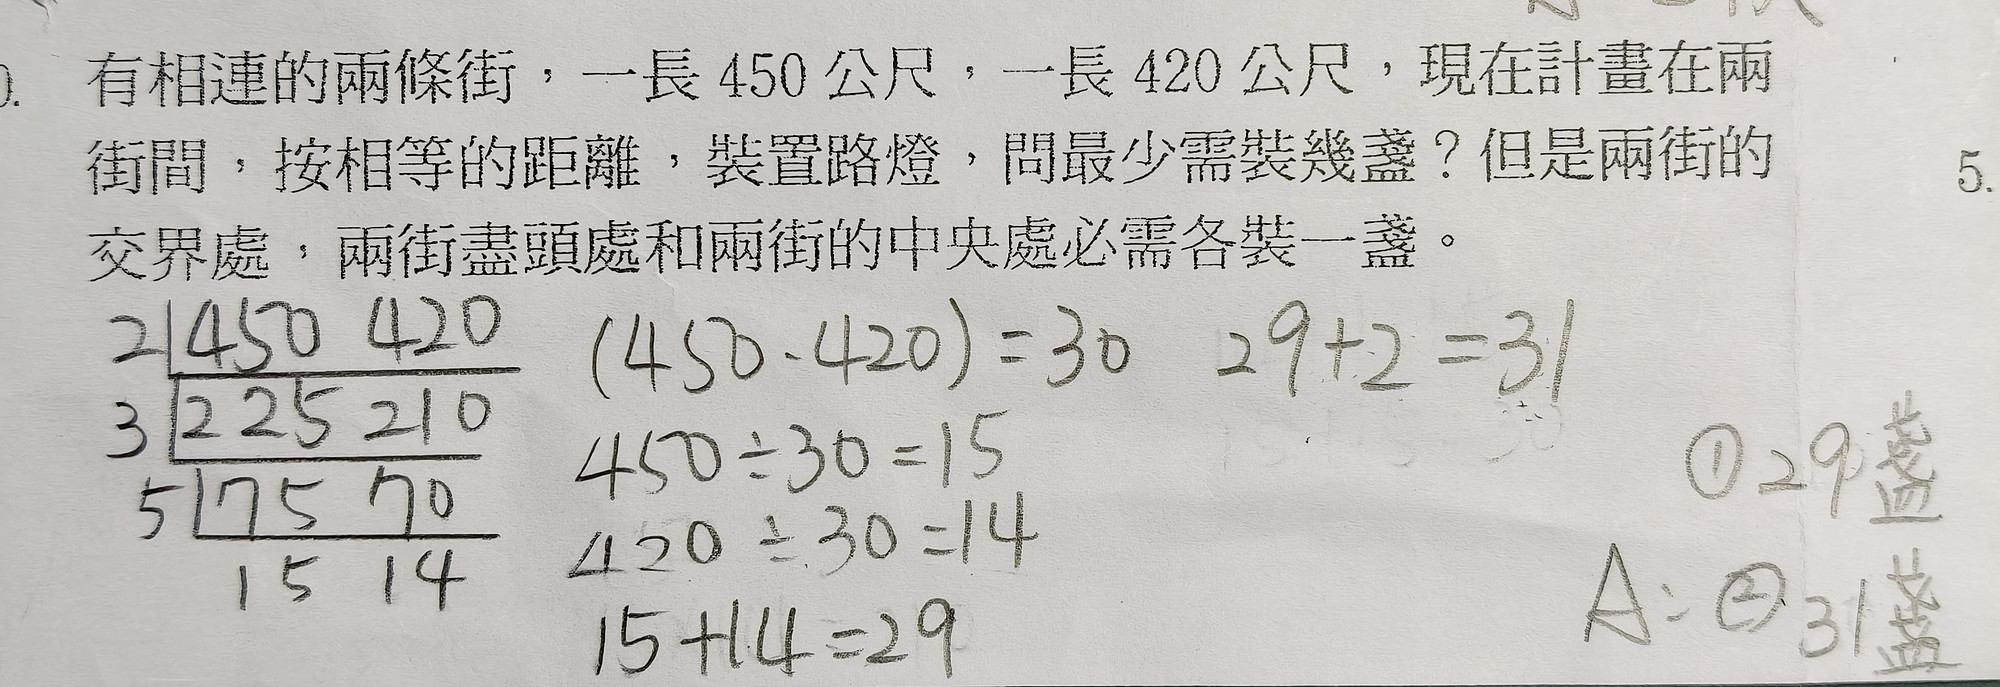 有相連的兩條街，一長 450 公尺，一長 420 公尺，現在計畫在兩
街間，按相等的距離，裝置路燈，問最少需裝幾盞？但是兩街的
交界處，兩街盡頭處和兩街的中央處必需各裝一盞。
5.
2 450 420
3 225 210
5 75 70
15 14
(450-420)=30
450÷30=15
420÷30=14
15+14=29
29+2=31
①29盞
A:②31盞